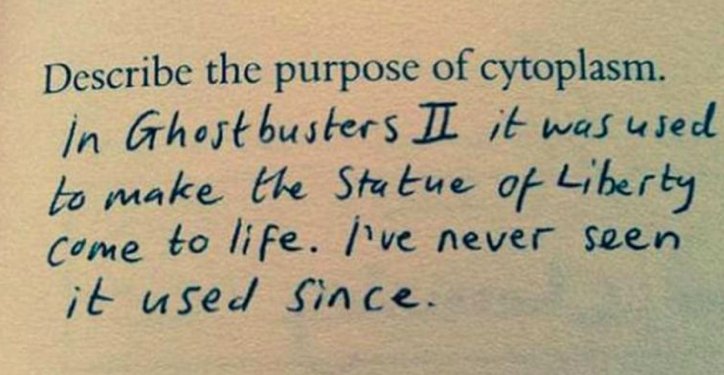 Describe the purpose of cytoplasm.
In Ghostbusters II it was used
to make the Statue of Liberty
come to life. I've never seen
it used since.